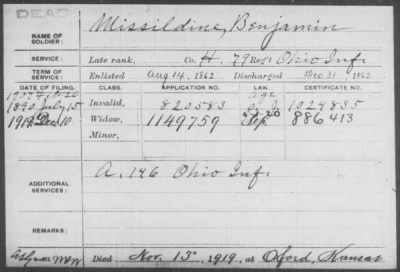 DEAD
NAME OF SOLDIER: Missildine, Benjamin
SERVICE: Late rank, Co. H. 79 Reg't Ohio Inf.
TERM OF SERVICE: Enlisted Aug 14, 1862 Discharged Dec 31, 1862
DATE OF FILING. CLASS. APPLICATION NO. LAW. CERTIFICATE NO.
Age
1890 July 15 Invalid, 820583 1024835
Dec 10 Widow, 1149759 886413
Minor,
ADDITIONAL SERVICES: A. 146 Ohio Inf.
REMARKS:
Died Nov. 13", 1919, at Oxford, Kansas